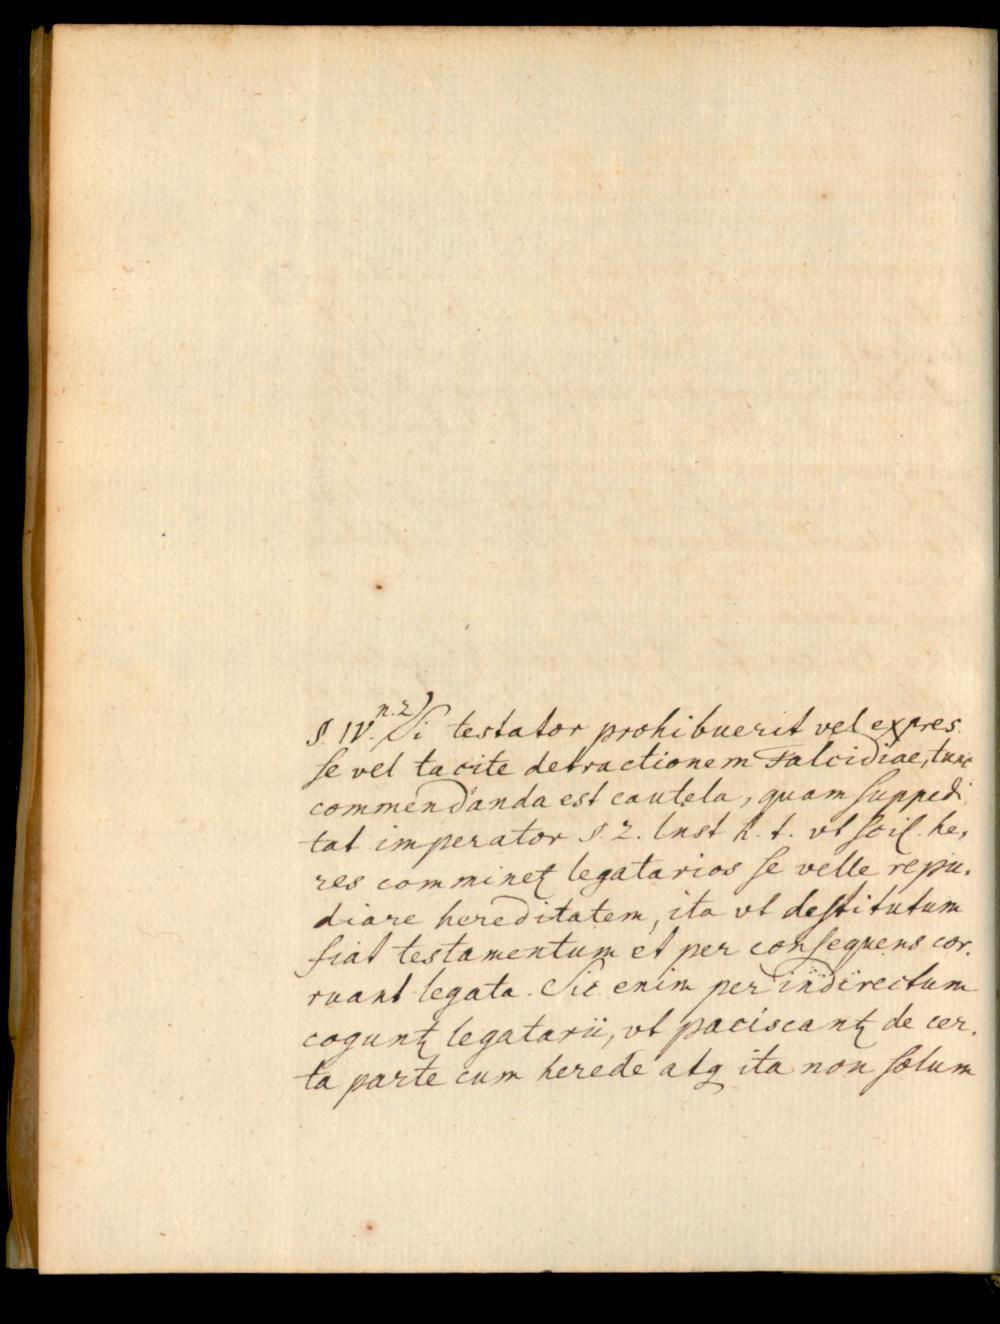 §. IV. n. 2) Si testator prohibuerit vel expres
se vel tacite detractionem Falcidiae, tunc
commendanda est cautela, quam suppedi
tat imperator §. 2. Inst h. t. vt scil. he,
res comminet legatarios se velle repu.
diare hereditatem, ita vt destitutum
fiat testamentum et per consequens cor.
ruant legata. Sic enim per indirectum
cogunt legatarii, vt paciscant de cer.
ta parte cum herede atq ita non solum